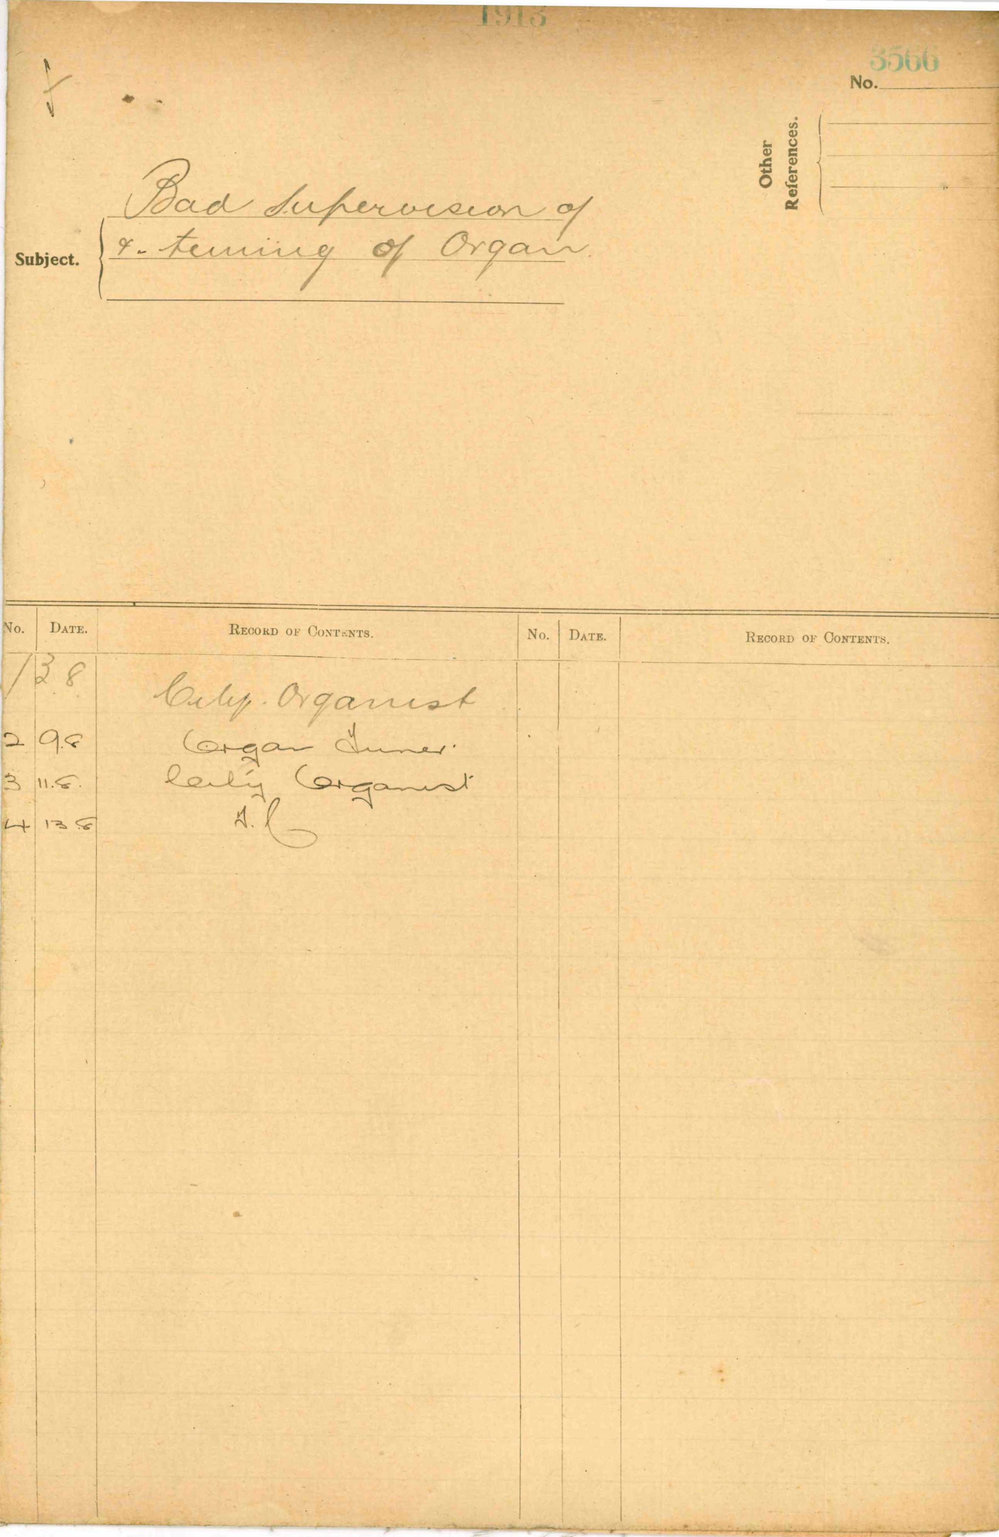 1913
3566
No.
Other
References.
Bad Supervision of
& tuning of Organ.
Subject.
No. DATE. RECORD OF CONTENTS. No. DATE. RECORD OF CONTENTS.
1 3 8 City Organist
2 9.8 Organ Tuner
3 11.8. City Organist
4 13 8 T. C